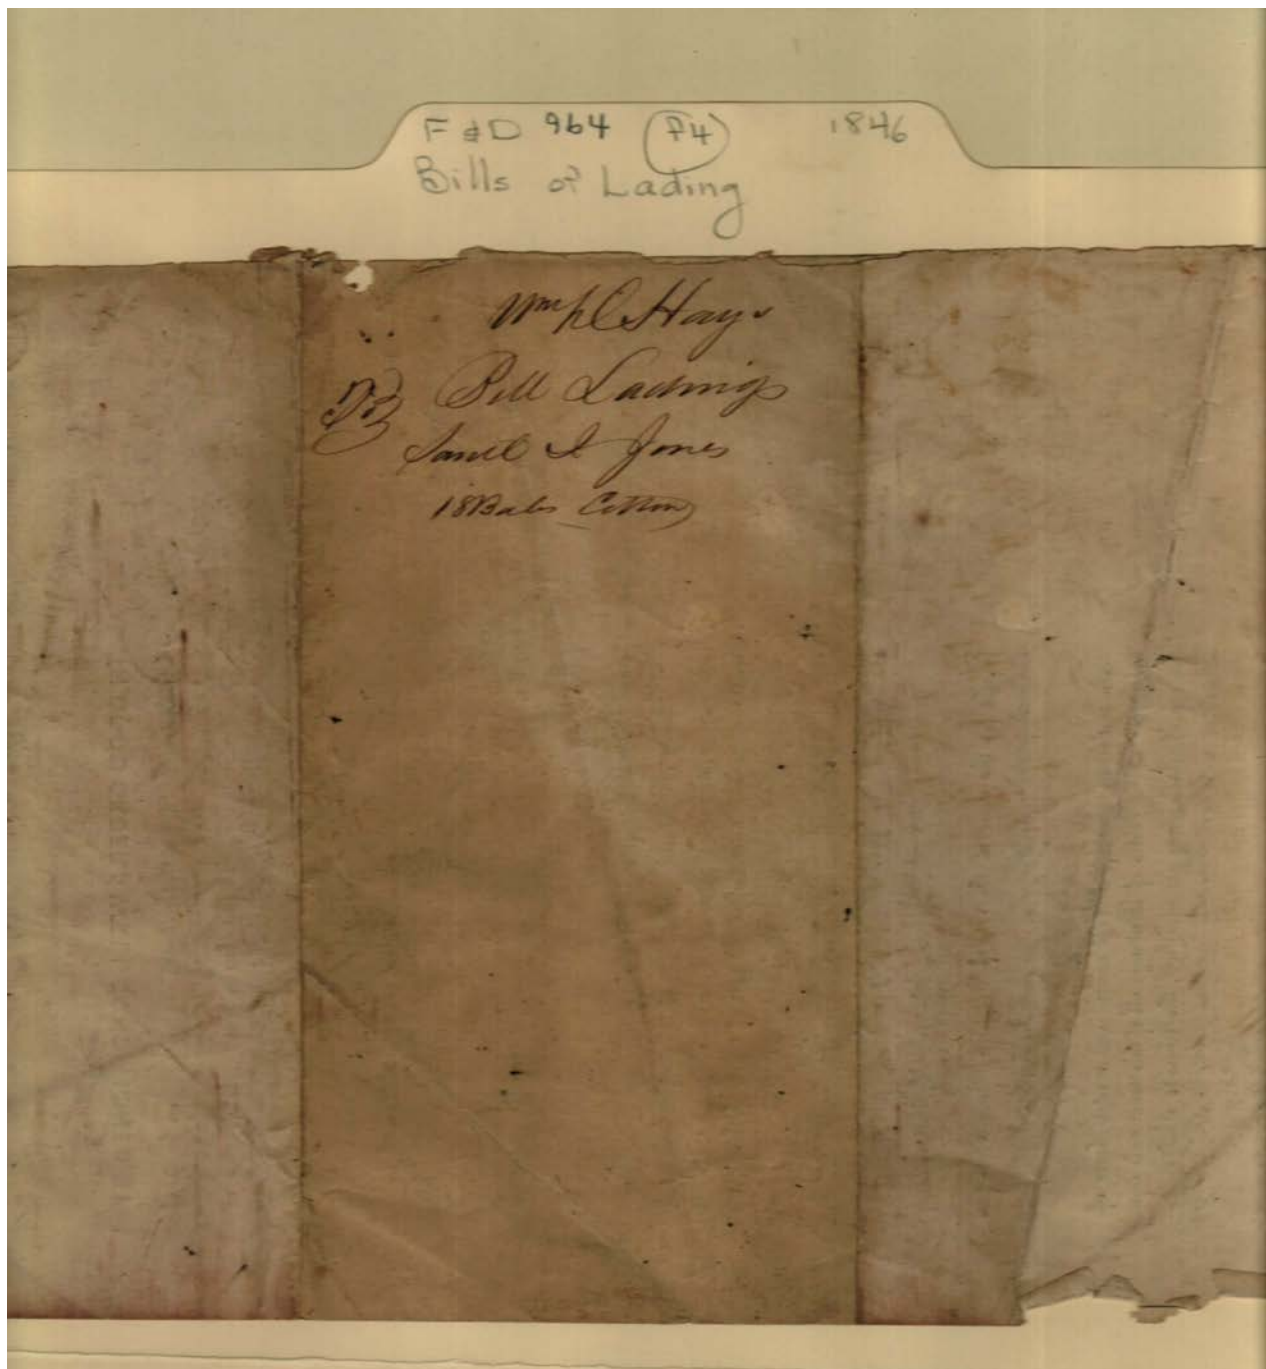 F & D 964 P4 1846
Bills of Lading
Hays
Bill Lading
Saml I Jones
18 Bales Cotton